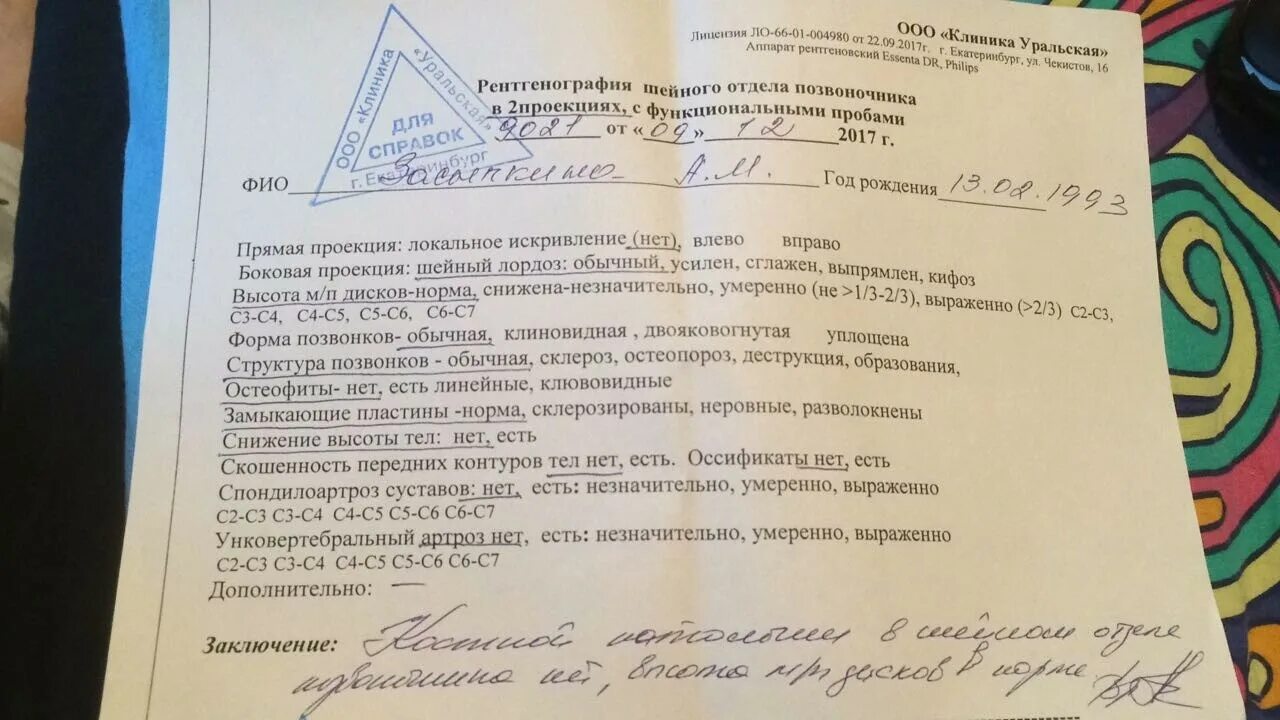 ООО «Клиника Уральская»
Лицензия ЛО-66-01-004980 от 22.09.2017г. г. Екатеринбург, ул. Чекистов, 16
Аппарат рентгеновский Essenta DR, Philips
ООО «Клиника «Уральская»
ДЛЯ СПРАВОК
г. Екатеринбург
Рентгенография шейного отдела позвоночника
в 2проекциях, с функциональными пробами
9021 от «09» 12 2017 г.
ФИО А.М. Год рождения 13.02.1993
Прямая проекция: локальное искривление (нет), влево вправо
Боковая проекция: шейный лордоз: обычный, усилен, сглажен, выпрямлен, кифоз
Высота м/п дисков-норма, снижена-незначительно, умеренно (не >1/3-2/3), выраженно (>2/3) С2-С3,
С3-С4, С4-С5, С5-С6, С6-С7
Форма позвонков- обычная, клиновидная , двояковогнутая уплощена
Структура позвонков - обычная, склероз, остеопороз, деструкция, образования,
Остеофиты- нет, есть линейные, клювовидные
Замыкающие пластины -норма, склерозированы, неровные, разволокнены
Снижение высоты тел: нет, есть
Скошенность передних контуров тел нет, есть. Оссификаты нет, есть
Спондилоартроз суставов: нет, есть: незначительно, умеренно, выраженно
С2-С3 С3-С4 С4-С5 С5-С6 С6-С7
Унковертебральный артроз нет, есть: незначительно, умеренно, выраженно
С2-С3 С3-С4 С4-С5 С5-С6 С6-С7
Дополнительно: —
Заключение: Костной патологии в шейном отделе
позвоночника нет, высота м/п дисков в норме